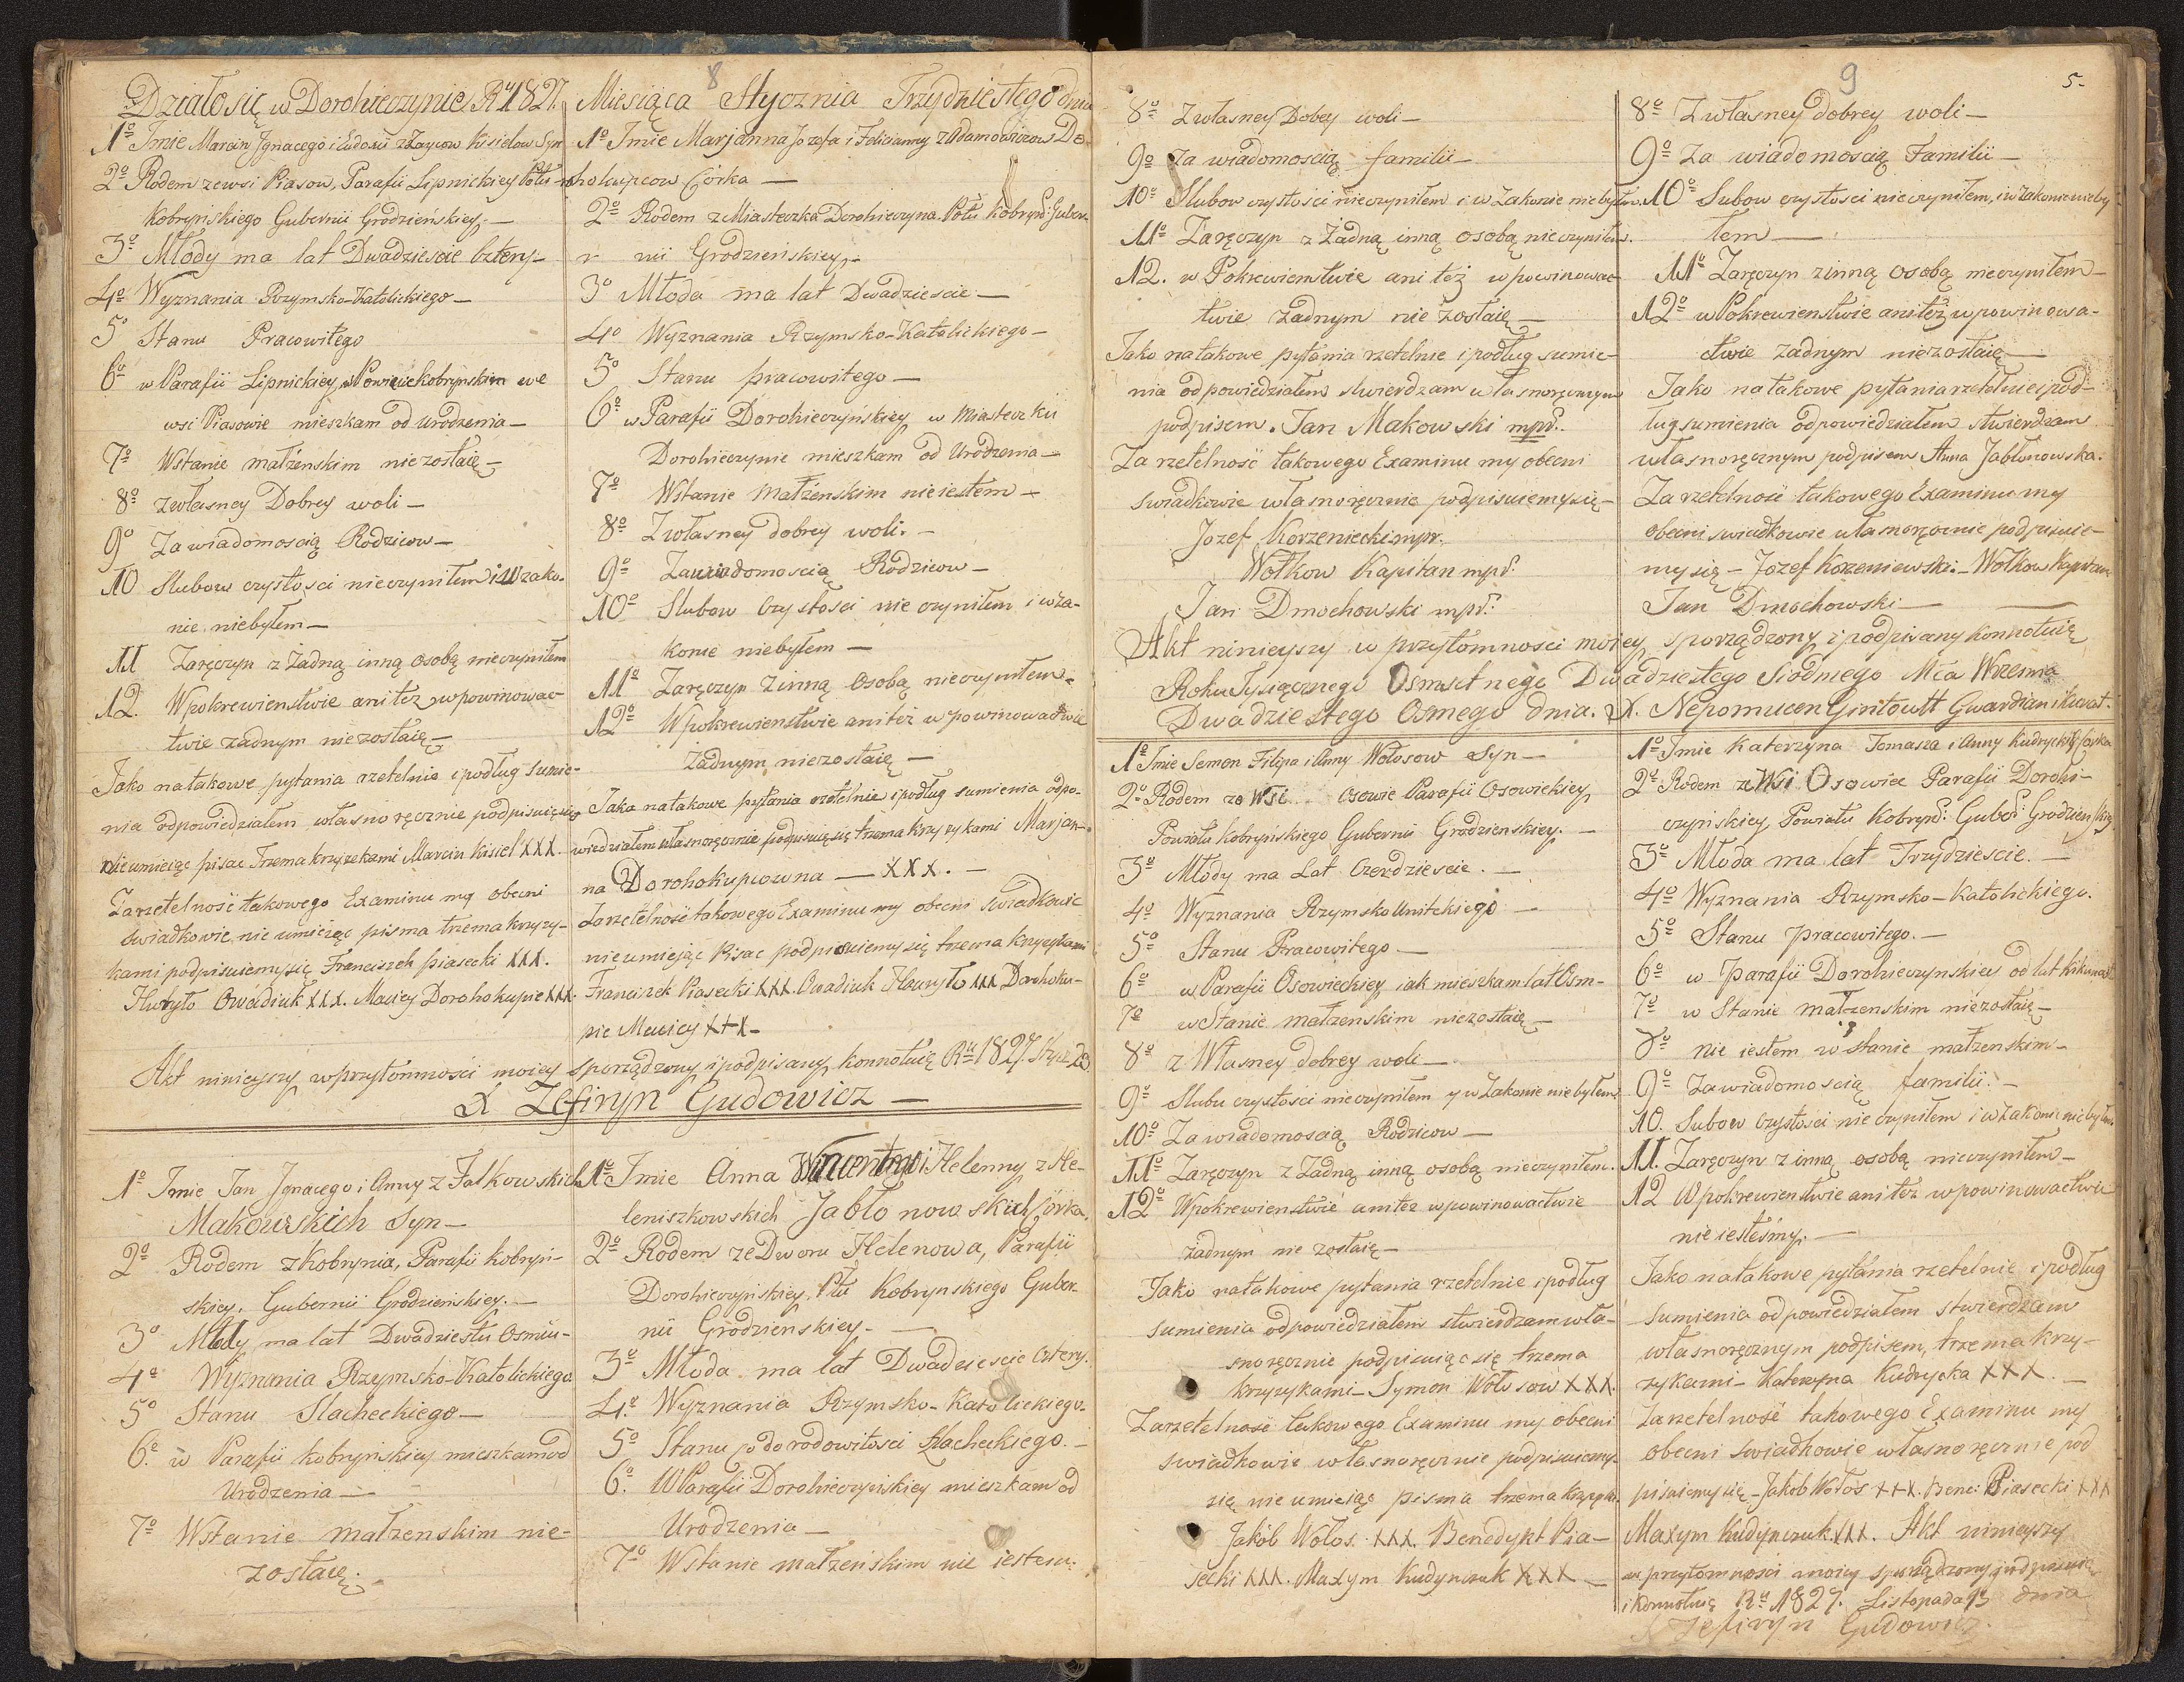 8
Działo się w Dorohiczynie Rᵘ 1827. Miesiąca Stycznia Trzydziestego dnia
1º Imie Marcin Jgnacego i Eudoxii z Zaycow Kisielow Syn
2º Rodem ze wsi Piasow, Parafii Lipnickiey Pᵒtu
Kobryńskiego Gubernii Grodzieńskiey. —
3º Młody ma lat Dwadziescie Cztery —
4º Wyznania Rzymsko-Katolickiego —
5º Stanu Pracowitego
6º w Parafii Lipnickiey, w Powiecie Kobrynskim we
wsi Piasowie mieszkam od urodzenia —
7º Wstanie małżenskim niezostaię —
8º zwłasney Dobrey woli —
9º Za wiadomoscią Rodzicow —
10 Slubow czystosci nieczyniłem i w zako-
nie niebyłem —
11 Zaręczyn z Żadną inną osobą nieczyniłem
12. Wpokrewienstwie anitez wpowinowac-
twie zadnym niezostaię —
Jako natakowe pytania rzetelnie ipodług sumie-
nia odpowiedziałem własnoręcznie podpisuię się
nieumieiąc pisac Trzema krzyzykami Marcin Kisiel XXX.
Zarzetelność takowego Examinu my obecni
swiadkowie nie umieiąc pisma trzema krzyzy-
kami podpisuiemysię Franciszek Piasecki XXX.
Owadiuk XXX. Maciey Dorohokupiec XXX.
1º Imie Marjanna Jozefa i Felicianny z Adamowiczow Do-
rohokupcow Córka —
2º Rodem z Miasteczka Dorohiczyna Pᵒtu Kobryń: Guber-
nii Grodzieńskiey. —
3º Młoda ma lat Dwadziescie —
4º Wyznania Rzymsko-Katolickiego —
5º Stanu pracowitego —
6º w Parafii Dorohiczyńskiey w Miasteczku
Dorohiczynie mieszkam od Urodzenia —
7º Wstanie Małżenskim nieiestem —
8º Zwłasney dobrey woli. —
9º Zawiadomoscią Rodzicow —
10º Slubow Czystosci nie czyniłem i wza-
konie niebyłem —
11º Zaręczyn Zinną Osobą nieczyniłem.
12º Wpokrewienstwie aniteż w powinowactwie
Żadnym niezostaię —
Jako natakowe pytania rzetelnie i podług sumienia odpo-
wiedziałem własnoręcznie podpisuię się trzema krzyzykami Marjan-
na Dorohokupcowna — XXX. —
Zarzetelność takowego Examinu my obecni swiadkowie
nieumiejąc Pisac podpisuiemy się trzema krzyzykami
Franciszek Piasecki XXX. Owadiuk Hawryło XXX Dorohoku-
piec Maciey XXX —
Akt ninieyszy wprzytomności moiey sporządzony ipodpisany konnotuię Rᵘ 1827.
X Zefiryn Gudowicz —
1º Imie Jan Jgnacego i Anny z Falkowskich
Makowskich Syn —
2º Rodem z Kobrynia, Parafii Kobryń-
skiey, Gubernii Grodzieńskiey. —
3º Młody ma lat Dwadziestu Osmiu —
4º Wyznania Rzymsko-Katolickiego
5º Stanu Slacheckiego —
6º w Parafii Kobryńskiey mieszkam od
Urodzenia —
7º Wstanie małzenskim nie-
zostaię.
1º Imie Anna Wincentego i Helenny z He-
leniszkowskich Jabłonowskich Córka.
2º Rodem ze Dworu Helenowa, Parafii
Dorohiczyńskiey, Ptu Kobrynskiego Guber-
nii Grodzienskiey. —
3º Młoda ma lat Dwadziescie Cztery.
4º Wyznania Rzymsko-Katolickiego.
5º Stanu podorodowitosci Szlacheckiego. —
6º. W Parafii Dorohiczyńskiey mieszkam od
Urodzenia —
7º Wstanie małzeńskim nie iestem.
9
5.
8º Zwłasney Dobrey woli —
9º Za wiadomoscią familii —
10º Slubow czystości nieczyniłem i w Zakonie niebyłem.
11º Zaręczyn z Żadną inną osobą nieczyniłem.
12. w Pokrewienstwie ani też wpowinowac-
twie Żadnym nie zostaię —
Jako natakowe pytania rzetelnie i podług sumie-
nia odpowiedziałem stwierdzam własnoręcznym
podpisem. Jan Makowski mpr.
Za rzetelność takowego Examinu my obecni
swiadkowie własnoręcznie podpisuiemysię —
Jozef Korzeniecki mpr.
Wołkow Kapitan mpr.
Jan Dmochowski mpr.
8º Zwłasney dobrey woli —
9º Za wiadomoscią Familii —
10º Subow czystosci nieczyniłem, i w Zakonie nieby-
łem —
11º Zaręczyn zinną osobą nieczyniłem —
12º w Pokrewienstwie aniteż wpowinowa-
ctwie Żadnym niezostaię —
Jako natakowe pytania rzetelnie i pod-
ług sumienia odpowiedziałem stwierdzam
własnoręcznym podpisem Anna Jabłonowska.
Za rzetelność takowego Examinu my
obecni swiadkowie własnoręcznie podpisuie-
my się — Jozef Korzeniewski — Wołkow Kapitan
Jan Dmochowski —
Akt ninieyszy w przytomnosci moiey sporządzony i podpisany konnotuię
Roku Tysiącznego Osmsetnego Dwadziestego Siodmego Mca Wrzesnia
Dwadziestego Osmego dnia. X. Nepomucen Gintowtt Gwardian i Kurat.
1º Imie Semon Filipa i Anny Wołosow Syn —
2º Rodem ze Wsi Osowie Parafii Osowickiey
Powiatu Kobryńskiego Gubernii Grodzienskiey. —
3º Młody ma Lat Czerdziescie. —
4º Wyznania Rzymsko Unitckiego —
5º Stanu Pracowitego —
6º w Parafii Osowieckiey iak mieszkam lat Osm —
7º w Stanie małzenskim niezostaię —
8º z Własney dobrey woli —
9º Slubu czystości nieczyniłem y w Zakonie niebyłem
10º Zawiadomoscią Rodzicow —
11º Zaręczyn z Żadną inną osobą nieczyniłem.
12º Wpokrewienstwie anitez wpowinowactwie
żadnym nie zostaię —
Jako natakowe pytania rzetelnie ipodług
sumienia odpowiedziałem stwierdzam wła-
snoręcznie podpisuiąc się trzema
krzyzykami — Symon Wołosow XXX.
Zarzetelność takowego Examinu my obecni
swiadkowie własnoręcznie podpisuiemy-
się nie umieiąc pisma trzema krzyzyka.
Jakób Wołos. XXX. Benedykt Pia-
secki XXX. Maxym Kudynczuk XXX —
1º Imie Katerzyna Tomasza i Anny Kudryckich Corka
2º Rodem ze Wsi Osowiec Parafii Dorohi-
czyńskiey, Powiatu Kobryń: Guber: Grodzienskiey
3º Młoda ma lat Trzydziescie. —
4º Wyznania Rzymsko-Katolickiego.
5º Stanu pracowitego. —
6º w Parafii Dorohiczynskiey od lat kilkunastu
7º w Stanie małzenskim niezostaię —
8º nie iestem w stanie małzenskim —
9º Zawiadomoscią familii. —
10. Subow Czystosci nie czyniłem i w Zakonie niebyłem
11. Zaręczyn z inną osobą nieczyniłem —
12 Wpokrewienstwie anitez wpowinowactwie
nie iestesmy. —
Jako natakowe pytania rzetelnie i podług
sumienia odpowiedziałem stwierdzam
własnoręcznym podpisem, trzema krzy-
zykami — Katerzyna Kudrycka XXX. —
Zarzetelność takowego Examinu my
obecni swiadkowie własnoręcznie pod
pisuiemysię — Jakob Wołos XXX. Bene: Piasecki XXX
Maxym Kudynczuk XXX. Akt ninieyszy
w przytomności moiey sporządzony i podpisany
i konnotuię Rᵘ 1827. Listopada 13 dnia
Zefiryn Gudowicz.